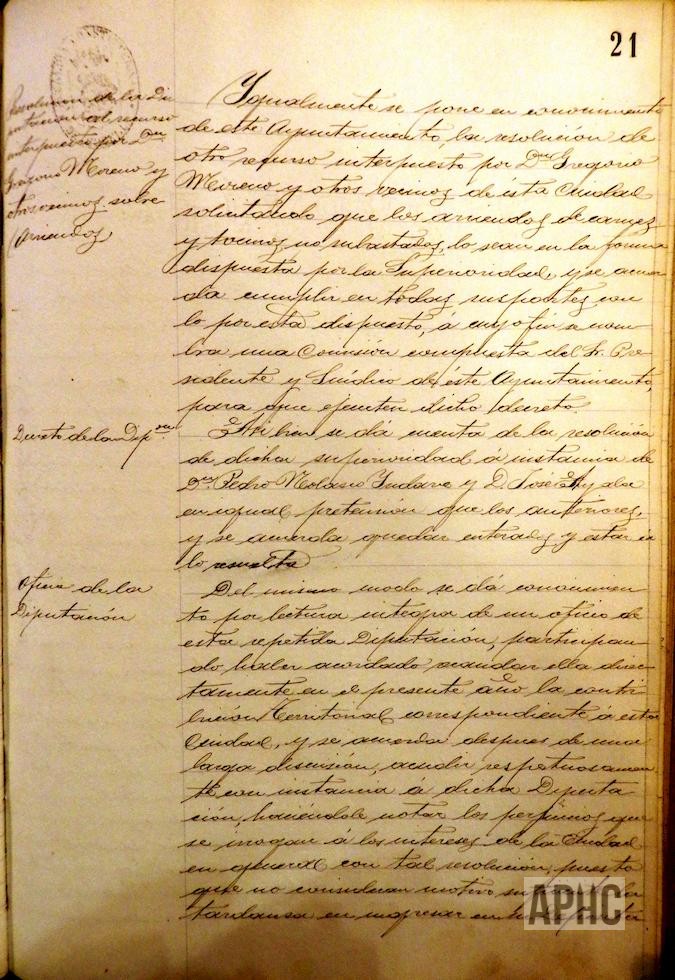 21
Resolucion de la Di
putacion al recurso
interpuesto por Dn
Gregorio Moreno y
otros vecinos sobre
Arriendos
Ygualmente se pone en conocimiento
de este Ayuntamiento, la resolución de
otro recurso interpuesto por Dn Gregorio
Moreno y otros vecinos de ésta Ciudad
solicitando que los arriendos de carnes
y tocinos no subastados, lo sean en la forma
dispuesta por la Superioridad, y se acuer
da cumplir en todas sus partes con
lo por esta dispuesto, á cuyo fin se nom-
bra una Comisión compuesta del Sr. Pre-
sidente y Síndico de éste Ayuntamiento,
para que ejecuten dicho decreto.
Decreto de la Dipon
Tambien se dá cuenta de la resolución
de dicha superioridad á instancia de
Dn Pedro Nolasco y D. José
en igual pretensión que los anteriores,
y se acuerda quedar enterados y estar á
lo resuelto
Oficio de la
Diputación
Del mismo modo se dá conocimien
to por lectura integra de un oficio de
esta repetida Diputación, participan
do haber acordado recaudar ella direc
tamente en el presente año la contri
bución Territorial correspondiente á esta
Ciudad, y se acuerda despues de una
larga discusión, acudir respetuosamen
te con instancia á dicha Diputa
ción, haciéndole notar los perjuicios que
se irrogan á los intereses de la Ciudad
en general con tal resolución, puesto
que no consideran motivo la
tardansa en ingresar en
APHC